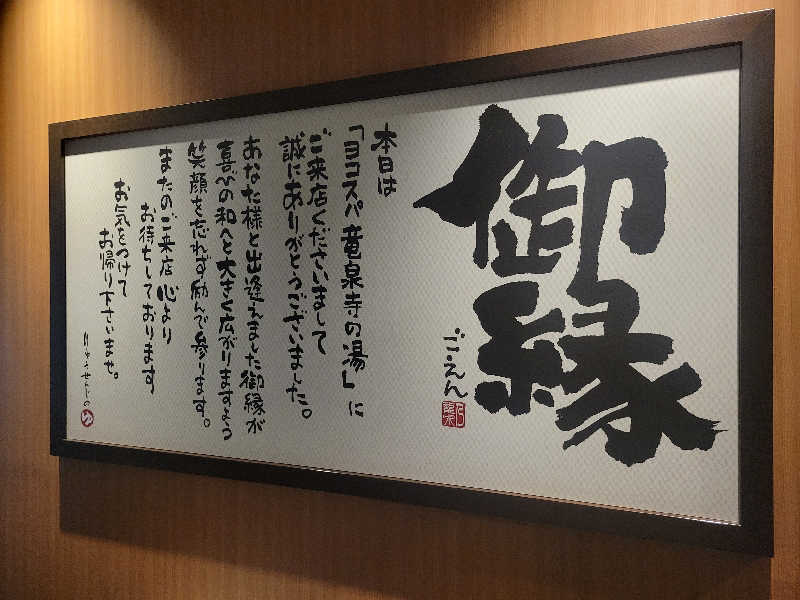 御縁
ご・えん
本日は
「ヨコスパ竜泉寺の湯」に
ご来店くださいまして
誠にありがとうございました。
あなた様と出逢えました御縁が
喜びの和へと大きく広がりますよう
笑顔を忘れず励んで参ります。
またのご来店心より
お待ちしております
お気をつけて
お帰り下さいませ。
りゅうせんじの
ゆ